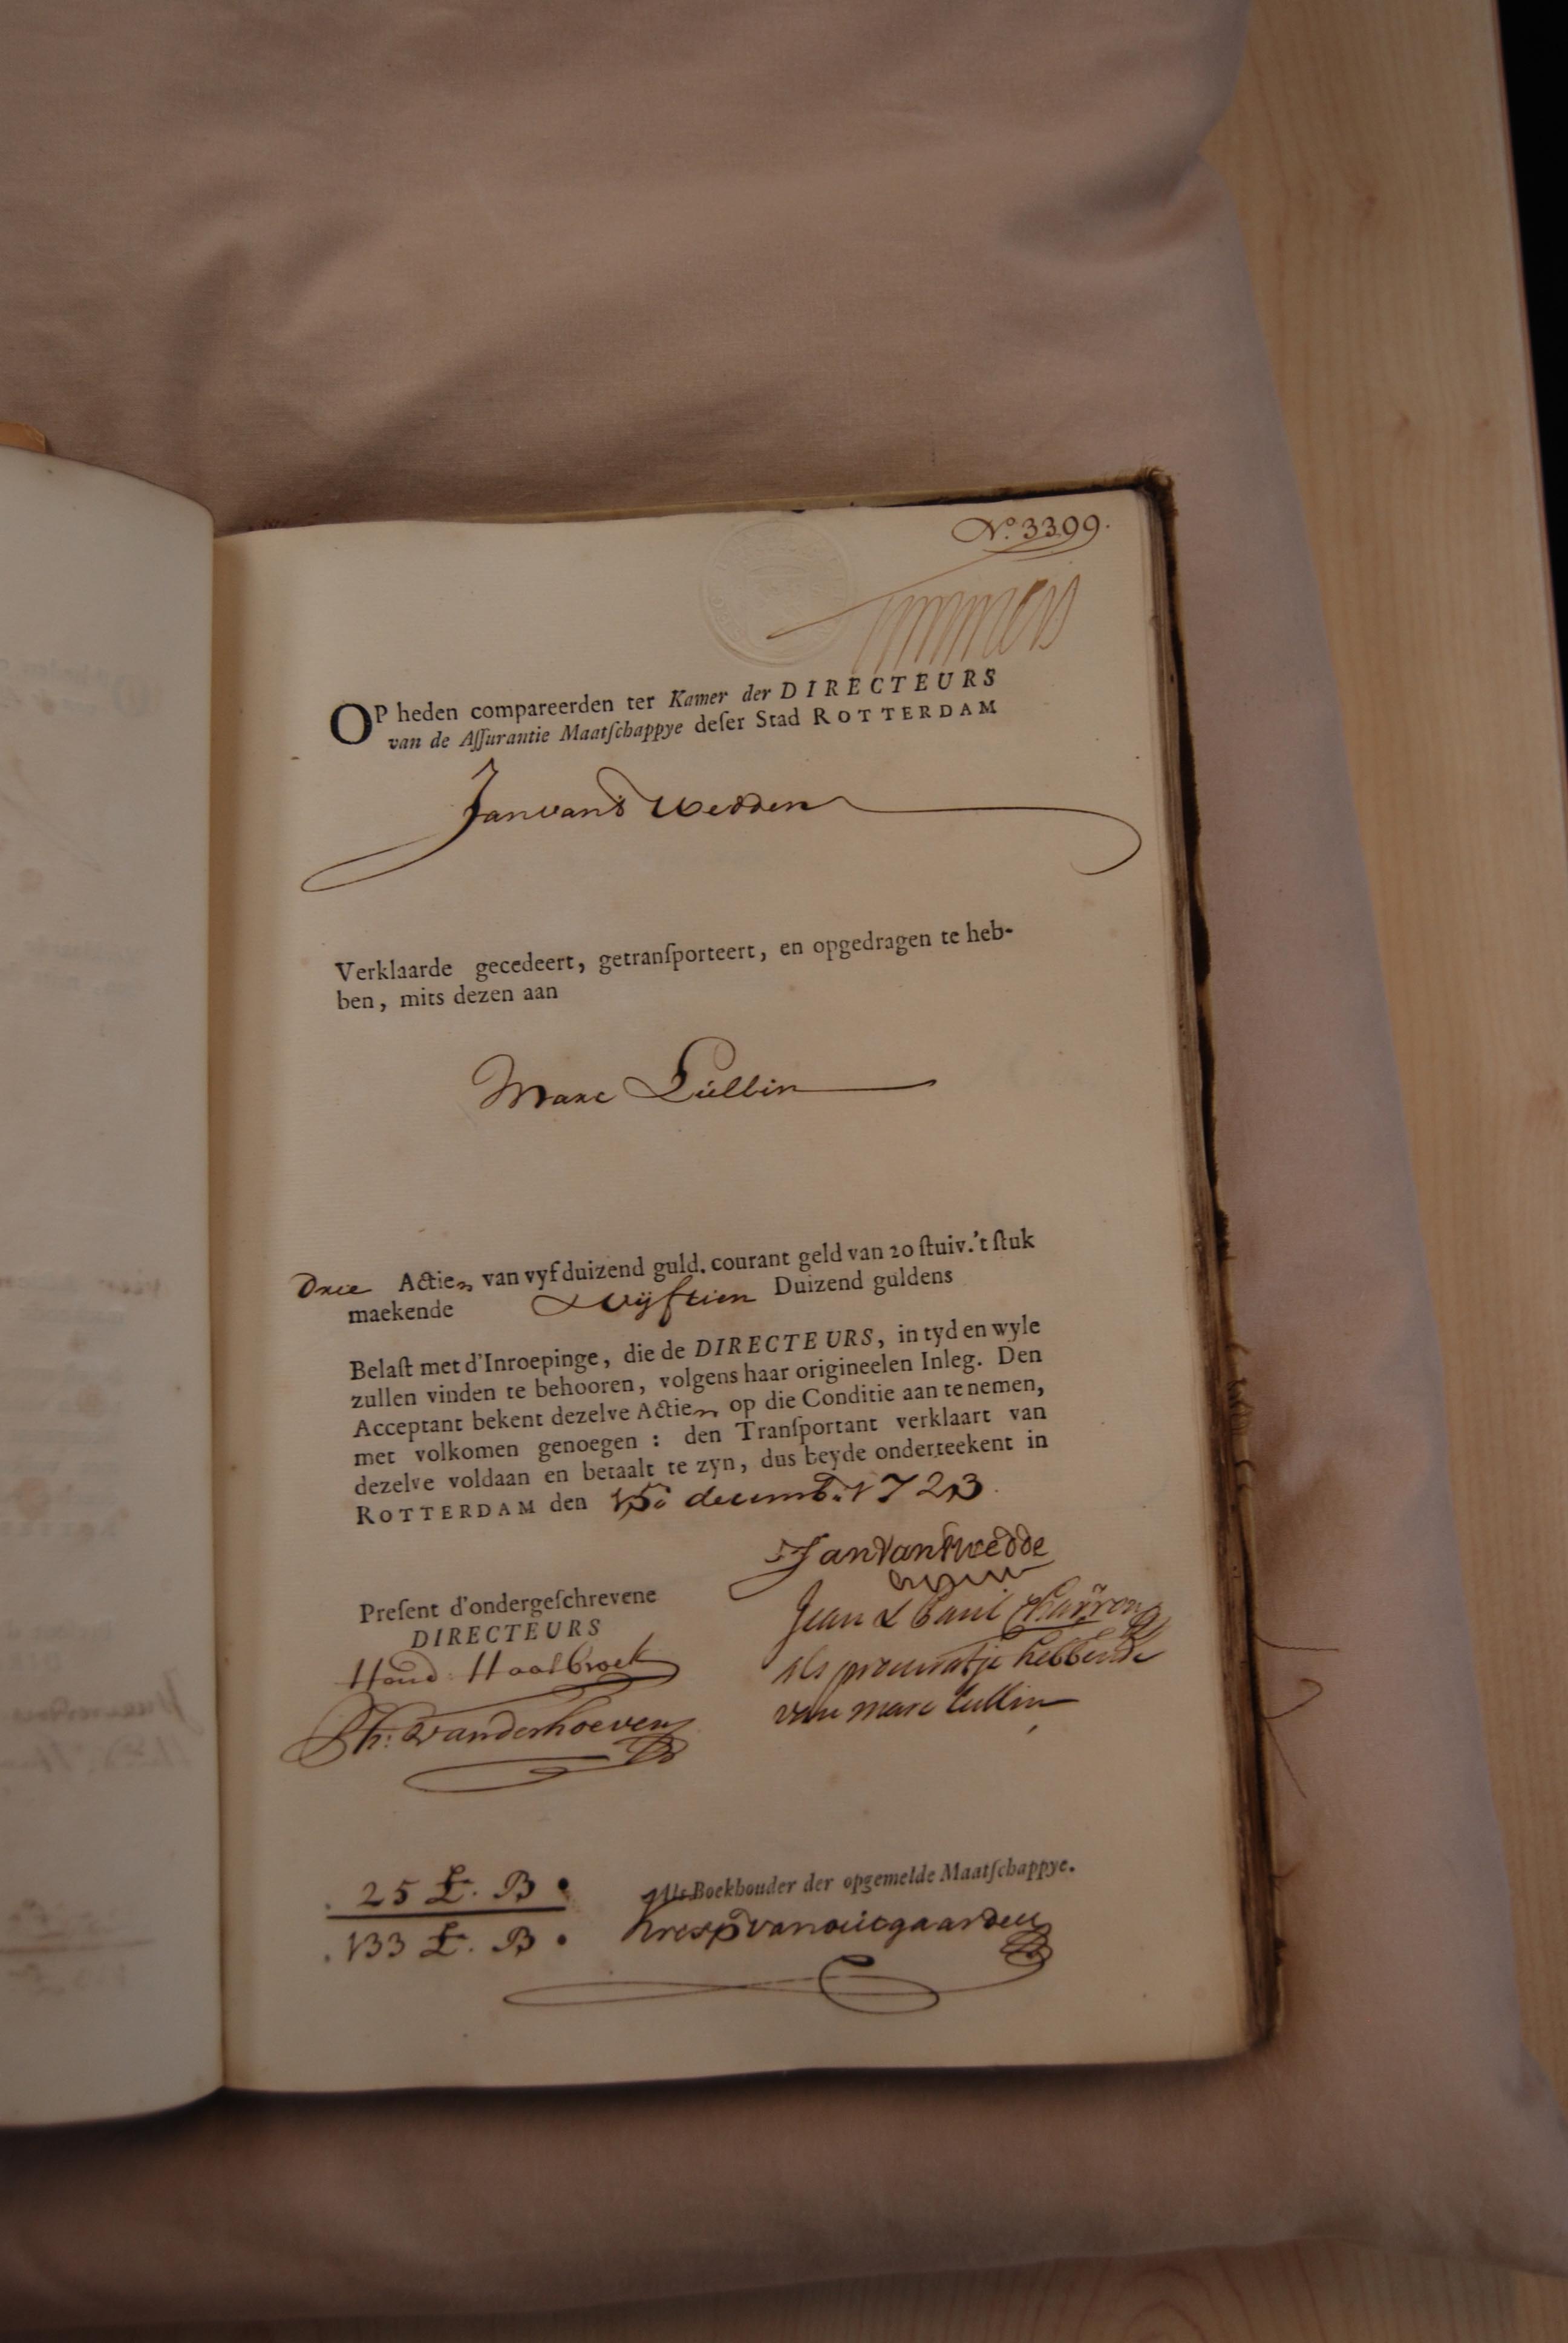 No. 3399.
OP heden compareerden ter Kamer der DIRECTEURS
van de Aſſurantie Maatſchappye deſer Stad ROTTERDAM
Jan vant Wedden
Verklaarde gecedeert, getranſporteert, en opgedragen te heb-
ben, mits dezen aan
Marc Lullin
Drie Actien van vyf duizend guld. courant geld van 20 ſtuiv. 't ſtuk
maekende vyftien Duizend guldens
Belaſt met d'Inroepinge, die de DIRECTEURS, in tyd en wyle
zullen vinden te behooren, volgens haar origineelen Inleg. Den
Acceptant bekent dezelve Actien op die Conditie aan te nemen,
met volkomen genoegen : den Tranſportant verklaart van
dezelve voldaan en betaalt te zyn, dus beyde onderteekent in
ROTTERDAM den 15o decemb. 1723.
Jan Vant Wedde
Jean & Paul Charron
als procuratje hebbende
van marc lullin
Preſent d'ondergeſchrevene
DIRECTEURS
Ph: vanderhoeven
25 L. B
133 L. B
Als Boekhouder der opgemelde Maatſchappye.